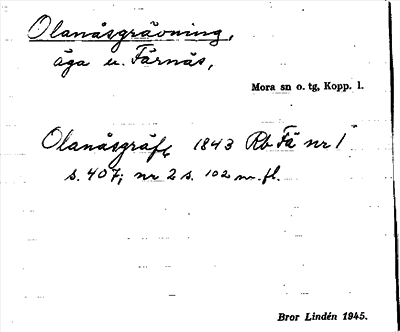 Olanåsgrävning,
äga u. Färnäs,
Mora sn o. tg, Kopp. l.
Olanåsgräfg 1843 Rb Fä nr 1
s. 407; nr 2 s. 102 m. fl.
Bror Lindén 1945.